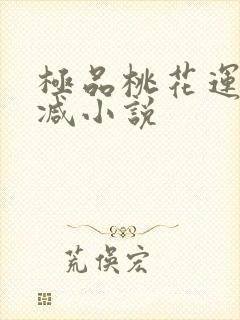 極品桃花運
减小説
荒俁宏